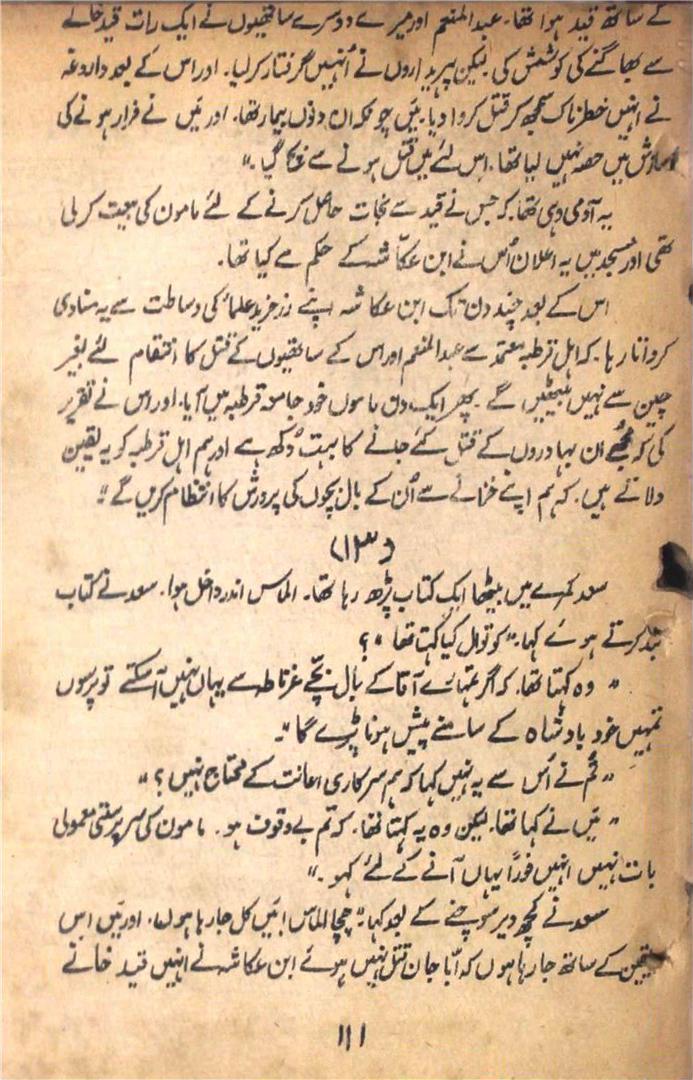 کے ساتھ قید ہوا تھا۔ عبدالمنعم اور میرے دوسرے ساتھیوں نے ایک رات قید خانے
سے بھاگنے کی کوشش کی لیکن پہریداروں نے اُنہیں گرفتار کر لیا۔ اور اس کے بعد داروغہ
نے انہیں خطرناک سمجھ کر قتل کروا دیا۔ میں چونکہ ان دنوں بیمار تھا۔ اور میں نے فرار ہونے کی
سازش میں حصہ نہیں لیا تھا۔ اس لئے میں قتل ہونے سے بچ گیا۔"
یہ آدمی وہی تھا۔ کہ جس نے قید سے نجات حاصل کرنے کے لئے مامون کی بیعت کر لی
تھی اور مسجد میں یہ اعلان اُس نے ابن عکاشہ کے حکم سے کیا تھا۔
اس کے بعد چند دن تک ابن عکاشہ اپنے زر خرید علماء کی وساطت سے یہ منادی
کرواتا رہا۔ کہ اہل قرطبہ معتمد سے عبدالمنعم اور اس کے ساتھیوں کے قتل کا انتقام لئے بغیر
چین سے نہیں بیٹھیں گے۔ پھر ایک دن ماموں خود جامعہ قرطبہ میں آیا۔ اور اس نے تقریر
کی کہ مجھے ان بہادروں کے قتل کئے جانے کا بہت دُکھ ہے اور ہم اہل قرطبہ کو یہ یقین
دلاتے ہیں۔ کہ ہم اپنے خزانے سے اُن کے بال بچوں کی پرورش کا انتظام کریں گے"
(۱۳)
سعد کمرے میں بیٹھا ایک کتاب پڑھ رہا تھا۔ الماس اندر داخل ہوا۔ سعد نے کتاب
بند کرتے ہوئے کہا۔ "کوتوال کیا کہتا تھا"؟
"وہ کہتا تھا۔ کہ اگر تمہارے آقا کے بال بچے غرناطہ سے یہاں نہیں آ سکتے تو پرسوں
تمہیں خود بادشاہ کے سامنے پیش ہونا پڑے گا"۔
"تُم نے اُس سے یہ نہیں کہا کہ ہم سرکاری اعانت کے محتاج نہیں؟"
"میں نے کہا تھا۔ لیکن وہ یہ کہتا تھا۔ کہ تم بے وقوف ہو۔ مامون کی سرپرستی معمولی
بات نہیں انہیں فوراً یہاں آنے کے لئے کہو۔"
سعد نے کچھ دیر سوچنے کے بعد کہا۔ "چچا الماس! میں کل جا رہا ہوں۔ اور میں اس
یقین کے ساتھ جا رہا ہوں کہ ابا جان قتل نہیں ہوئے ابن عکاشہ نے انہیں قید خانے
۱۱۱